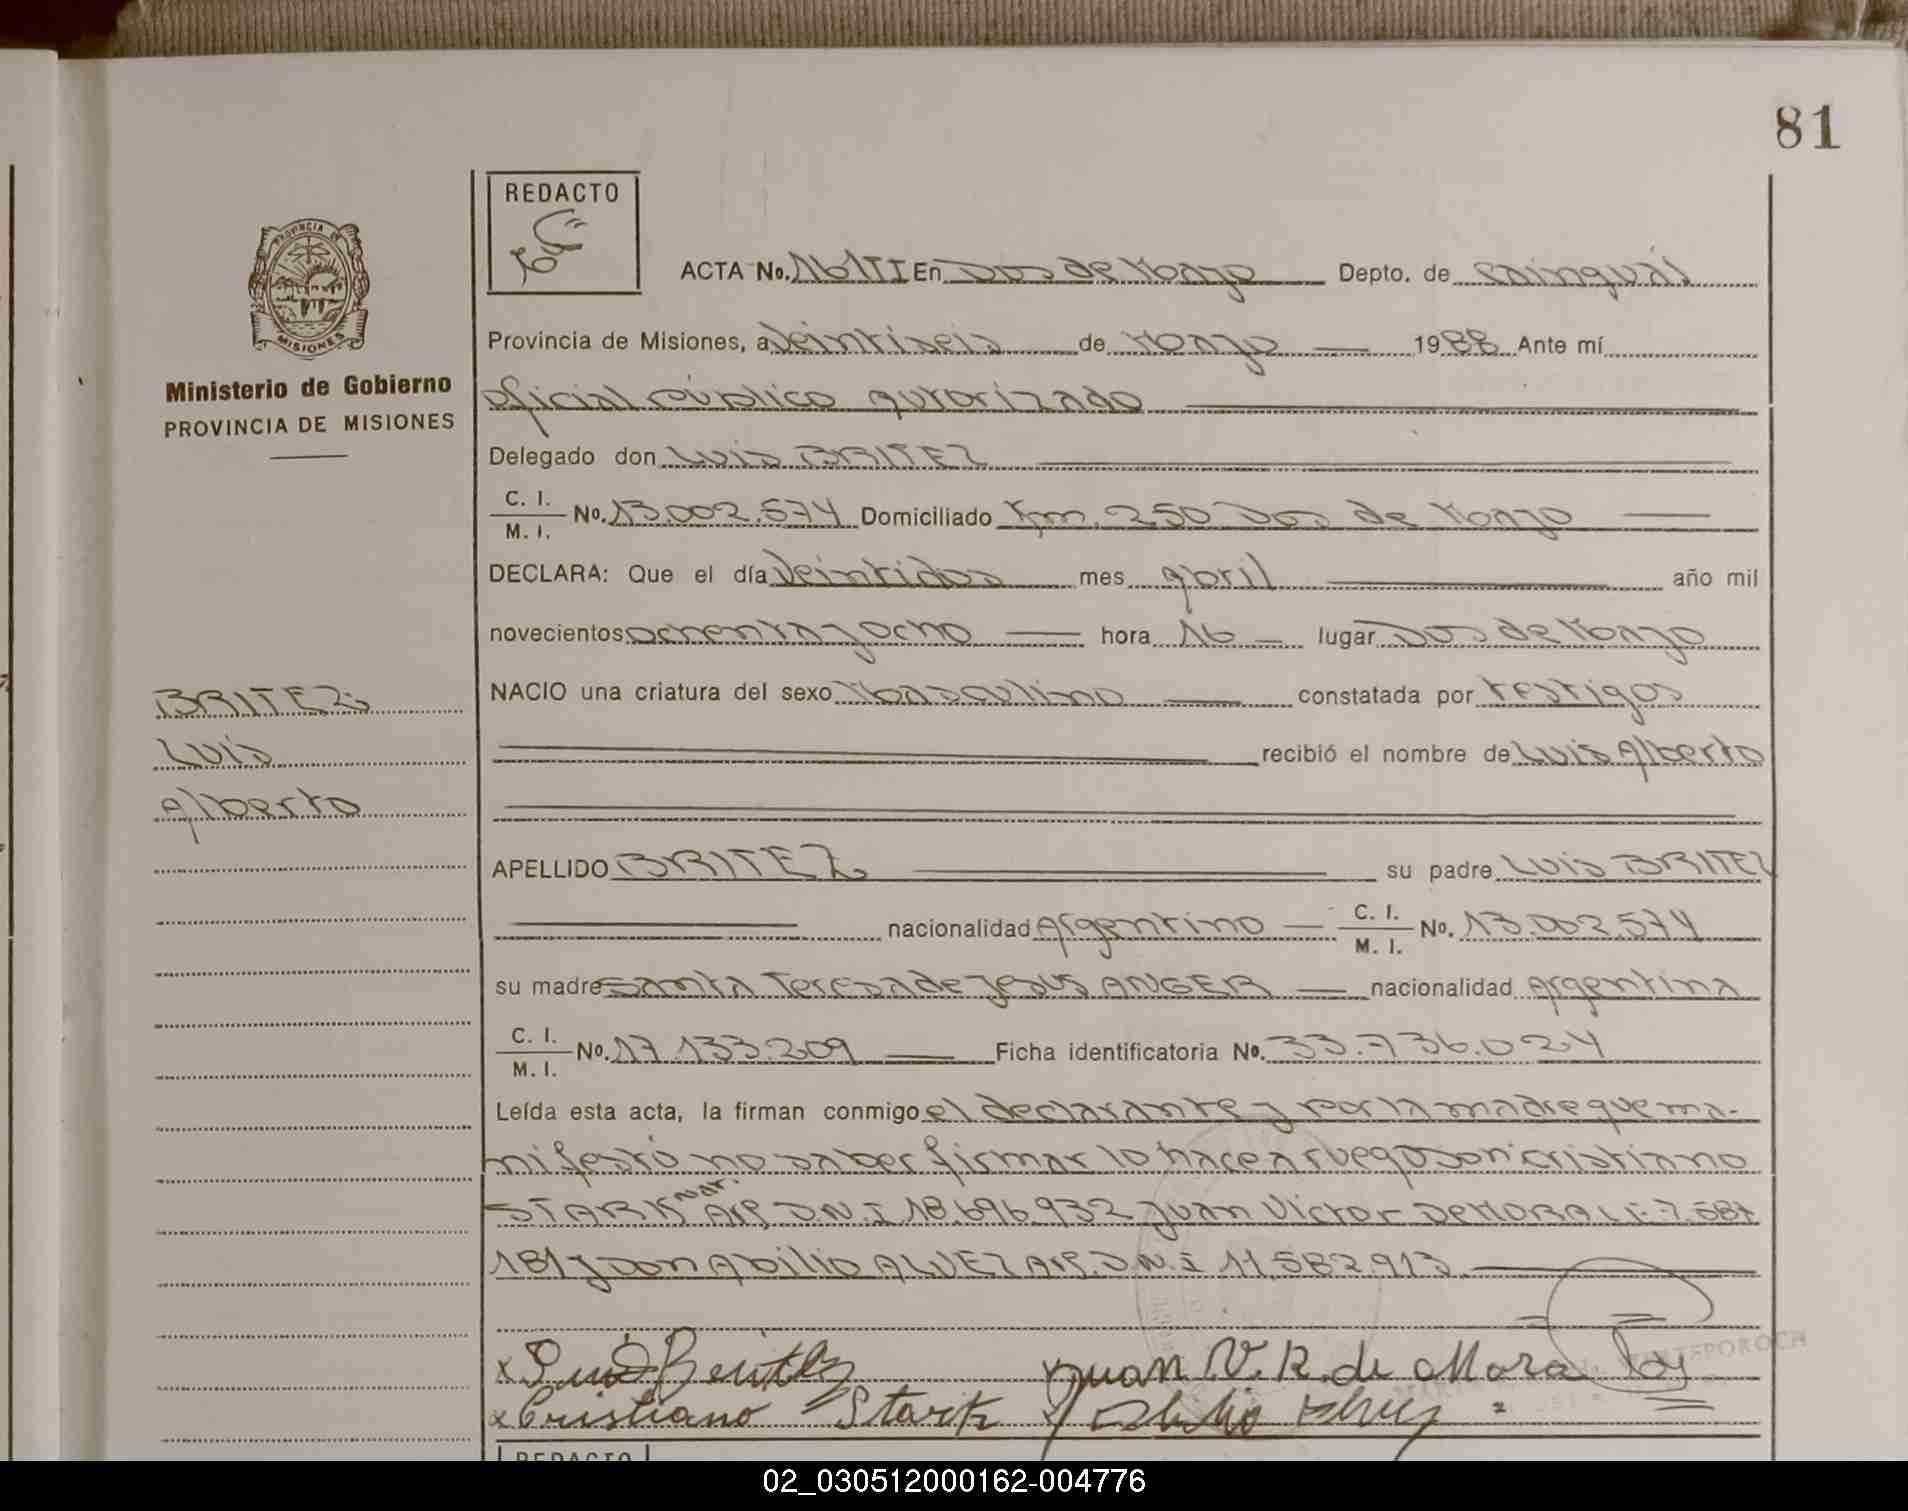 81
REDACTO
ACTA No. 161 TI En Dos de Mayo Depto. de Cainguás
PROVINCIA DE
MISIONES
Provincia de Misiones, a Veintiseis de Mayo 1988 Ante mí
Ministerio de Gobierno
PROVINCIA DE MISIONES
oficial público autorizado
Delegado don Luis BRITEZ
C. I.
M. I. No. 13.002.574 Domiciliado Km. 250 Dos de Mayo
DECLARA: Que el día Veintidos mes abril año mil
novecientos ochenta y ocho hora 16 lugar Dos de Mayo
BRITEZ
Luis
Alberto
NACIO una criatura del sexo Masculino constatada por testigos
recibió el nombre de Luis Alberto
APELLIDO BRITEZ su padre Luis BRITEZ
nacionalidad Argentino C. I.
M. I. No. 13.002.574
su madre Santa Teresa de Jesus ANGER nacionalidad Argentina
C. I.
M. I. No. 17.133.209 Ficha identificatoria No. 33.736.024
Leída esta acta, la firman conmigo el declarante y por la madre que ma-
nifestó no saber firmar lo hace a ruego don Cristiano
STARK Arg. D.N.I 18.696.932 Juan Victor DEMORA L.E. 7.587
181 y Don Abilio ALVEZ Arg. D.N.I 11.582.913.
x Luis Britez x Juan V. R. de Mora
x Cristiano Stark x Abilio Alvez
REDACTO
02_030512000162-004776